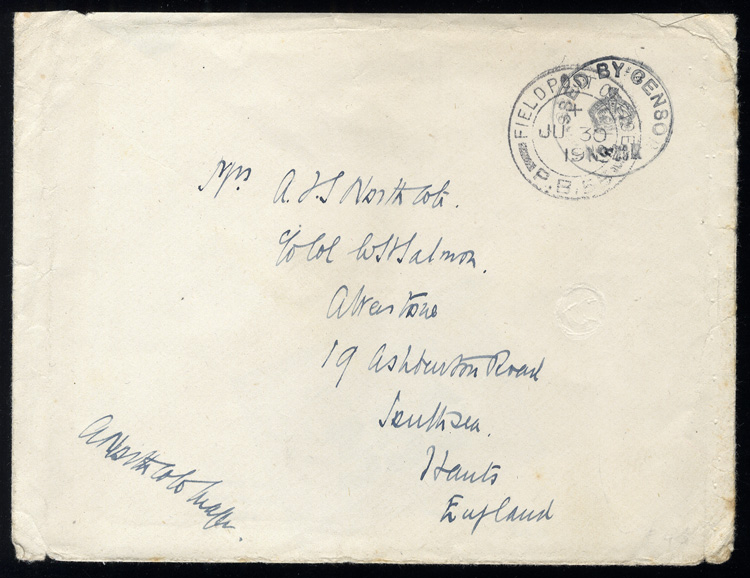 FIELD POST O
P.B.E
PASSED BY CENSOR
JU 30
191
Mrs A.F.S Northcote.
C/o Col W.H Salmon.
Alverstone
19 Ashburton Road
Southsea.
Hants
England
A Northcote Major.